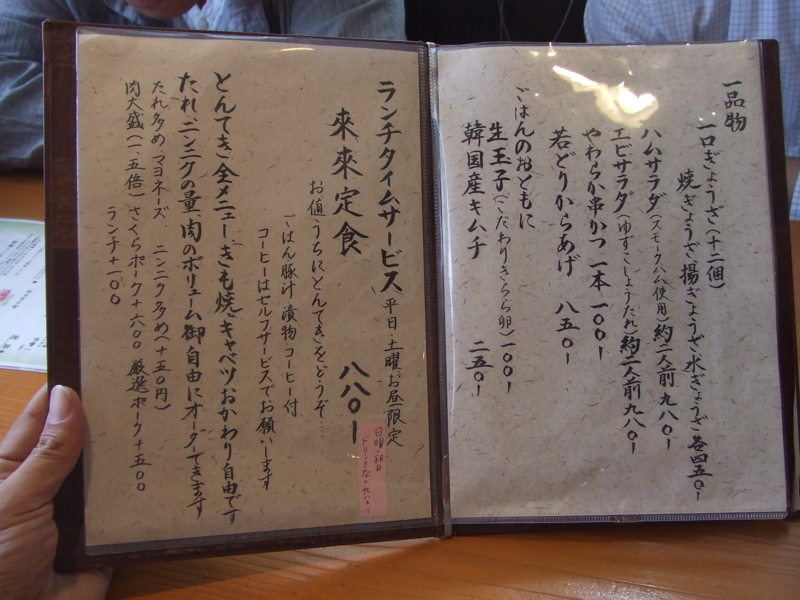 一品物
一口ぎょうざ(十二個)
焼ぎょうざ揚ぎょうざ水ぎょうざ各四五〇-
ハムサラダ(スモークハム使用)約二人前九八〇-
エビサラダ(ゆずこしょうたれ)約二人前九八〇-
やわらか串かつ一本一〇〇-
若どりからあげ 八五〇-
ごはんのおともに
生玉子(こだわりきらら卵)一〇〇-
韓国産キムチ 二五〇-
ランチタイムサービス 平日、土曜、お昼限定
來來定食 八八〇-
日曜・祝日
ドリンクなし九八〇-
お値うちにとんてきをどうぞ…
ごはん豚汁漬物・コーヒー付
コーヒーはセルフサービスでお願いします
とんてき全メニュー、きも焼キャベツおかわり自由です
たれ、ニンニクの量、肉のボリューム御自由にオーダできます
たれ多め マヨネーズ、 ニンニク多め(+五〇円)
肉大盛(一、五倍)さくらポーク+六〇〇 厳選ポーク+五〇〇
ランチ+一〇〇